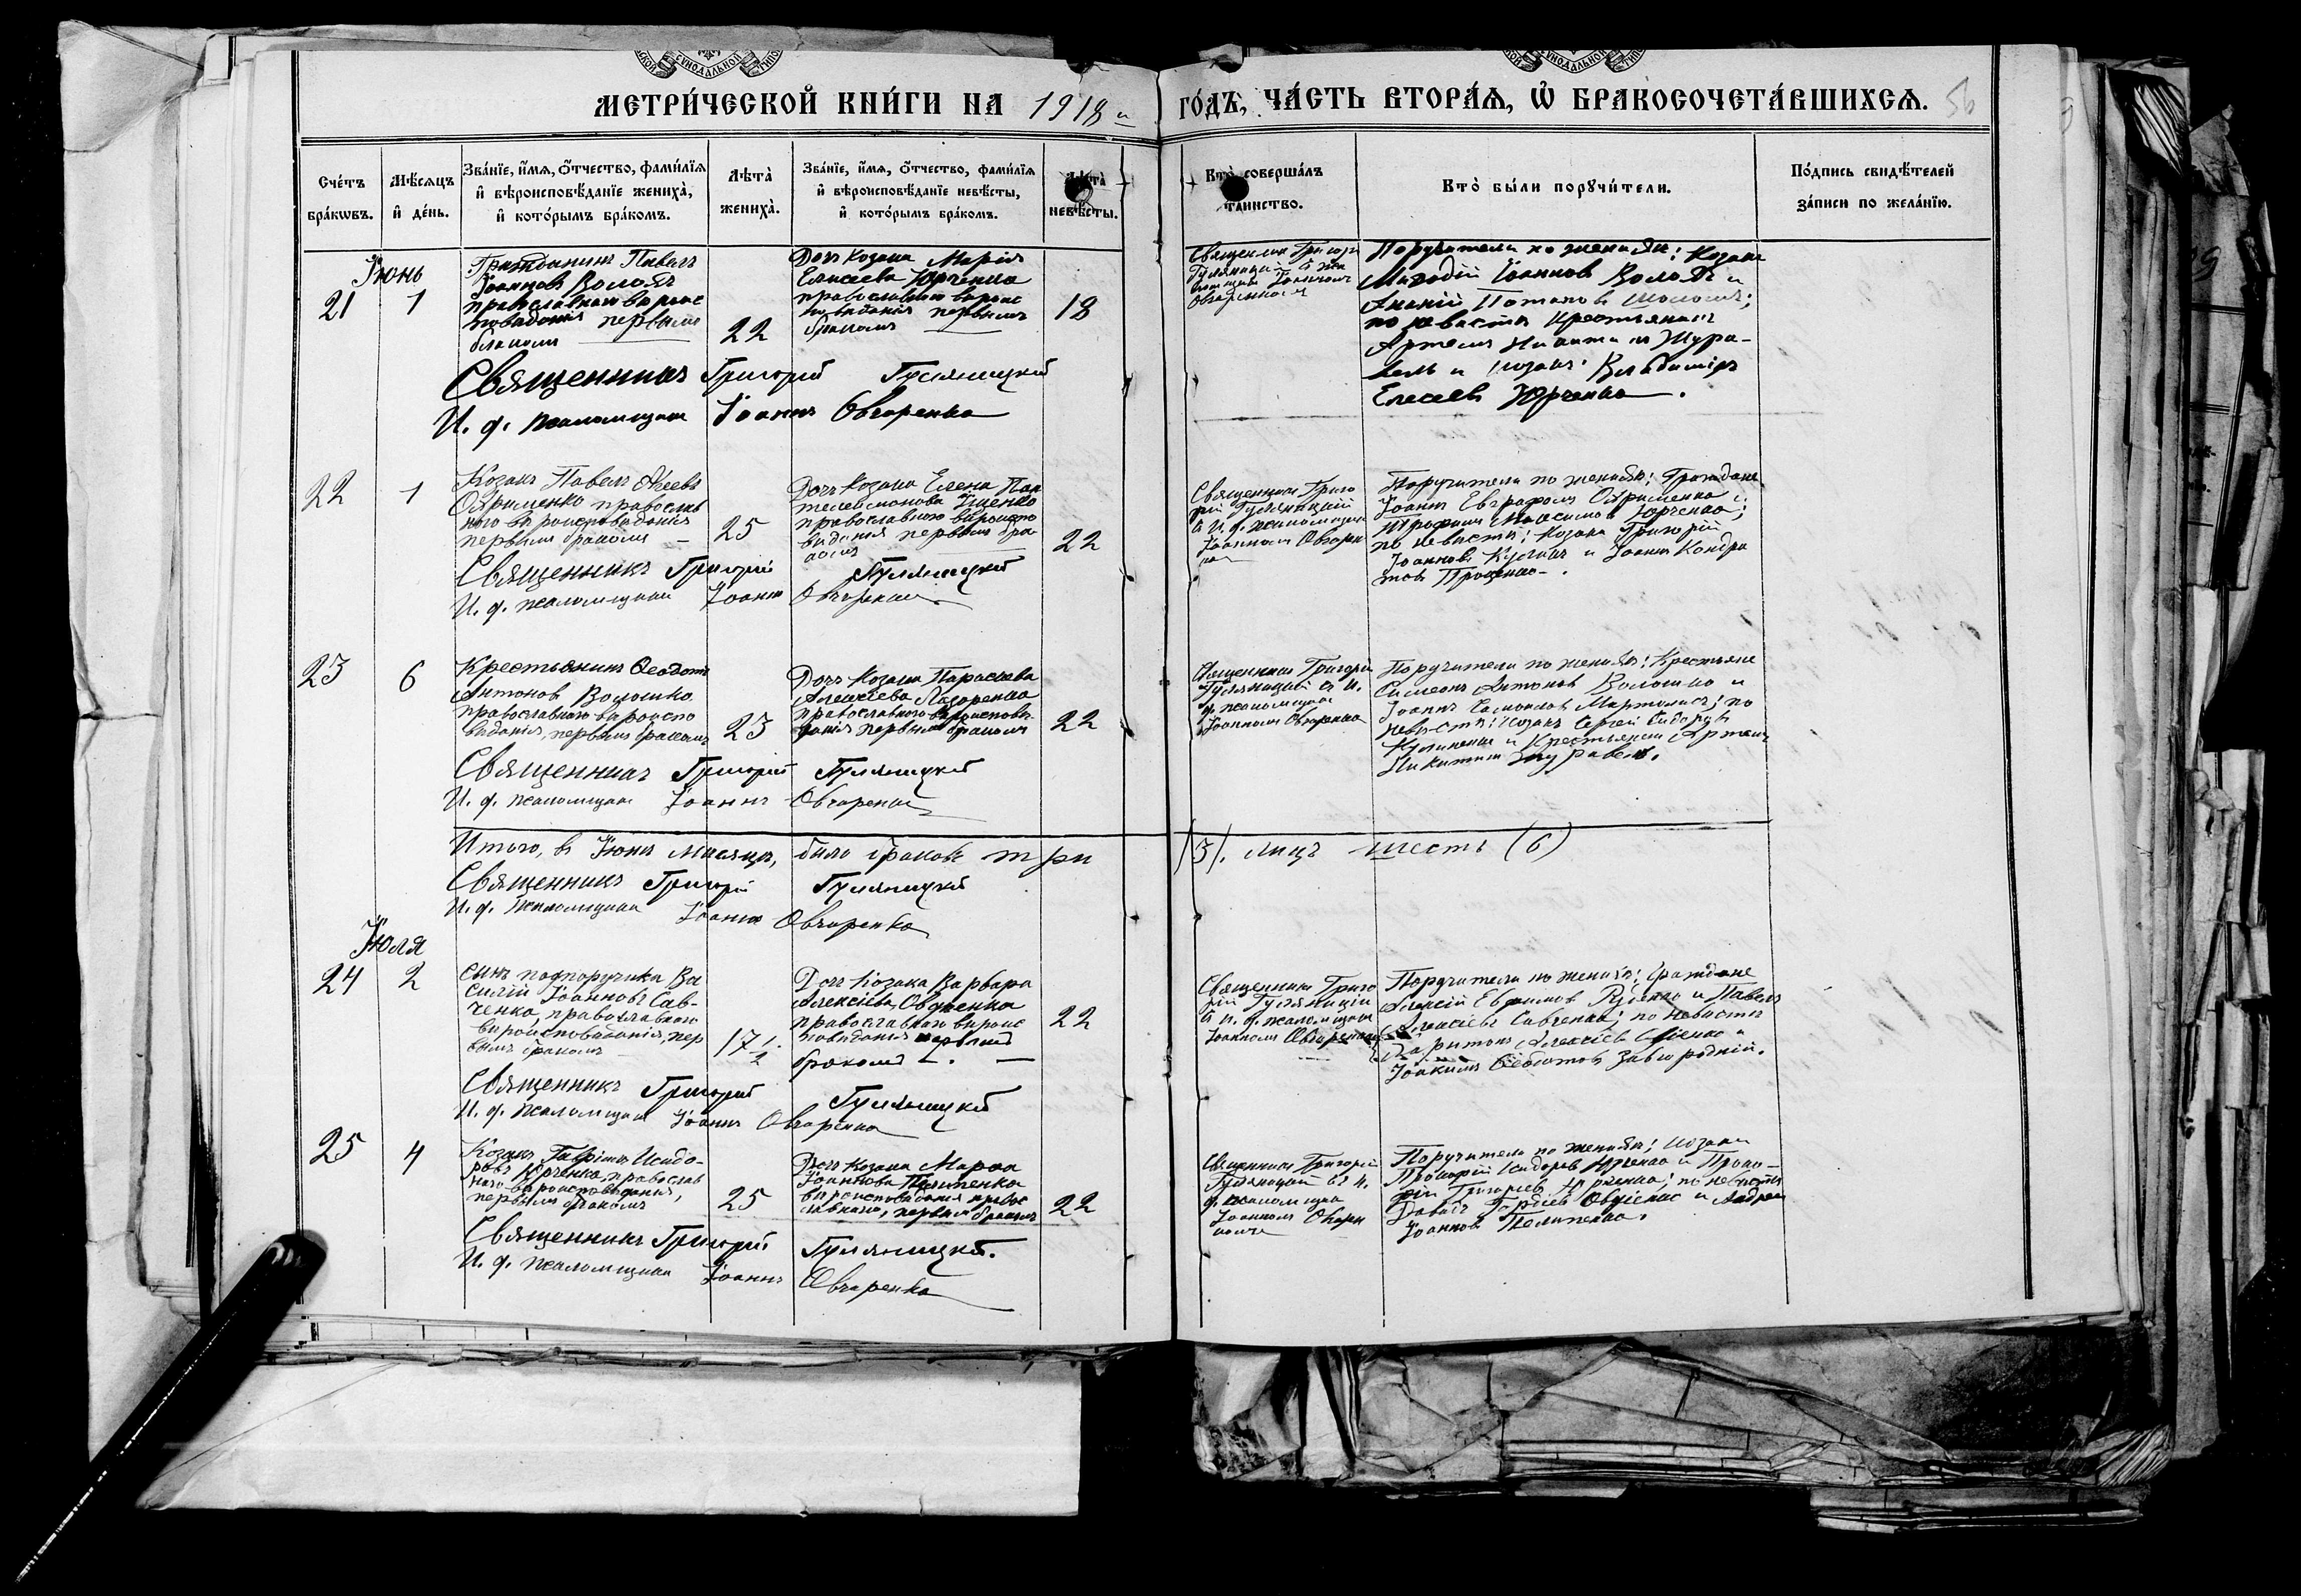 МЕТРИ́ЧЕСКОЙ КНИ́ГИ НА 1918 й ГО́ДЪ, ЧА́СТЬ ВТОРА́Я, Ѽ БРАКОСОЧЕТА́ВШИХСЯ. 56
Сче́тъ бра́кѡвъ.
Мѣ́сяцъ и҆ де́нь.
Зва́нїе, и҆́мя, ѻ҆́тчество, фами́лїя и҆ вѣроисповѣ́данїе жениха̀, и҆ кото́рымъ бра́комъ.
Лѣта̀ жениха̀.
Зва́нїе, и҆́мя, ѻ҆́тчество, фами́лїя и҆ вѣроисповѣ́данїе невѣ́сты, и҆ кото́рымъ бра́комъ.
невѣ́сты.
Кто̀ соверша́лъ таинство.
Кто̀ бы́ли порꙋчи́тели.
По́дпись свидѣ́телей за́писи по жела́нїю.
Іюнь
21
1
Гражданинъ Павелъ
Іоанновъ
православнаго вѣроис
повѣданія первымъ
бракомъ
22
Дочь Козака Марія
Елисеева Юрченко
православнаго вѣроис
повѣданія первымъ
бракомъ
18
Священник Григорій
Гуляницкій
Іоанномъ
Овчаренкомъ
Поручители по женихѣ: Козаки
Іоанновъ и
по невѣстѣ Крестьянинъ
Артемъ Никитинъ Жура-
вель и козакъ Владиміръ
Елесеевъ Юрченко.
Священникъ Григорій Гуляницкій
И. д. псаломщика Іоаннъ Овчаренко
22
1
Козакъ Павелъ
православ
наго вѣроисповѣданія
первымъ бракомъ
25
Дочь Козака Елена Пан
телеимонова Ищенко
православнаго вѣроиспо
вѣданія первымъ бра
комъ
22
Священник Григо
рій Гуляницкій
с и. д. псаломщика
Іоанномъ Овчарен
ко
Поручители по женихѣ: Граждане
Іоаннъ и
Трофимъ Максимовъ Юрченко;
по невѣстѣ: козаки Григорій
Іоанновъ и Іоаннъ Кондра
товъ Проценко.
Священникъ Григорій Гуляницкій
И. д. псаломщика Іоаннъ Овчаренко
23
6
Крестьянинъ Ѳеодотъ
Антоновъ Волошко
православнаго вѣроиспо
вѣданія, первымъ бракомъ
23
Дочь Козака Параскева
Алексіева Лазоренко
православнаго вѣроисповѣ
данія первымъ бракомъ
22
Священник Григорій
Гуляницкій съ И.
д. псаломщика
Іоанномъ Овчаренко
Поручители по женихѣ: Крестьяне
Симеонъ Антоновъ Волошко и
Іоаннъ по
невѣстѣ: козакъ Сергій Сидоровъ
и Крестьянинъ Артемъ
Никитинъ Журавель.
Священникъ Григорій Гуляницкій
И. д. псаломщика Іоаннъ Овчаренко
Итого, въ Іюнѣ мѣсяцѣ, было браковъ три (3). лицъ шесть (6)
Священникъ Григорій Гуляницкій
И. д. псаломщика Іоаннъ Овчаренко
Іюля
24
2
Сынъ подпоручика Ва
силій Іоанновъ Сав-
ченко, православнаго
вѣроисповѣданія, пер
вымъ бракомъ
17 1/2
Дочь Козака Варвара
Алексіева
православнаго вѣроис
повѣданія первымъ
бракомъ
22
Священник Григо
рій Гуляницкій
с и. д. псаломщика
Іоанномъ Овчаренко
Поручители по женихѣ: Граждане
Алексій Ефимовъ и Павелъ
Алексіевъ Савченко; по невѣстѣ
Харитонъ Алексіевъ и
Іоакимъ Завгородній.
Священникъ Григорій Гуляницкій
И. д. псаломщика Іоаннъ Овчаренко
25
4
Козакъ Исидо-
ровъ Юрченко, православ
наго вѣроисповѣданія,
первымъ бракомъ
25
Дочь Козака
Іоаннова Пилипенко
вѣроисповѣданія правос
лавнаго, первымъ бракомъ
22
Священник Григорій
Гуляницкій съ и.
д. псаломщика
Іоанномъ Овчарен
комъ
Поручители по женихѣ: козаки
Прокофій Исидоровъ Юрченко и Проко-
фій Григорьевъ Юрченко; по невѣстѣ
Давидъ и Андрей
Іоанновъ Пилипенко.
Священникъ Григорій Гуляницкій.
И. д. псаломщика Іоаннъ Овчаренко